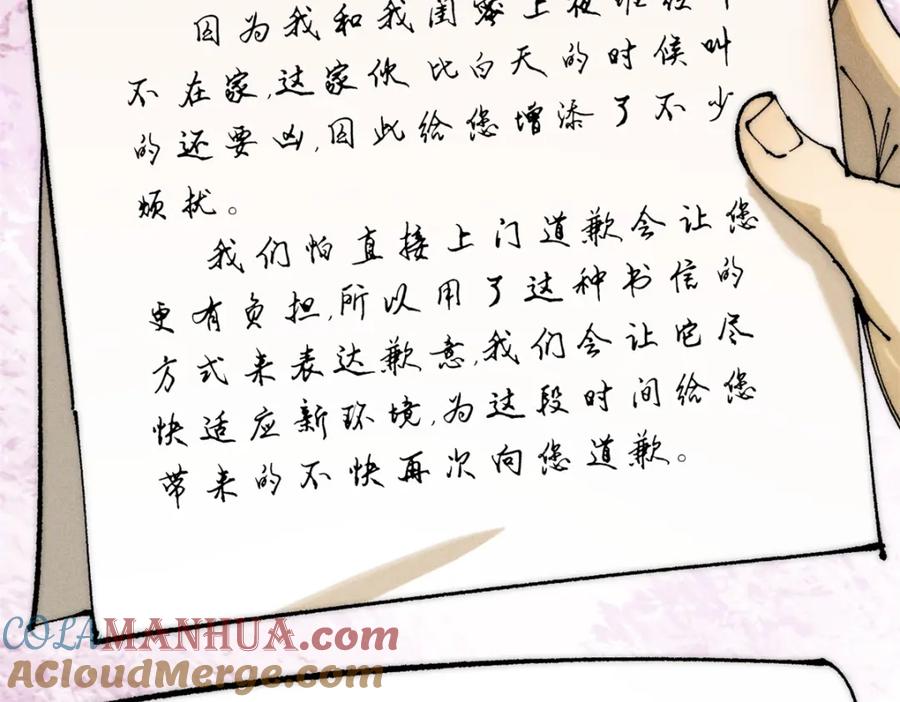 因为我和我闺蜜上夜班经常
不在家,这家伙比白天的时候叫
的还要凶,因此给您增添了不少
烦扰。
我们怕直接上门道歉会让您
更有负担,所以用了这种书信的
方式来表达歉意,我们会让它尽
快适应新环境,为这段时间给您
带来的不快再次向您道歉。
COLAMANHUA.com
ACloudMerge.com